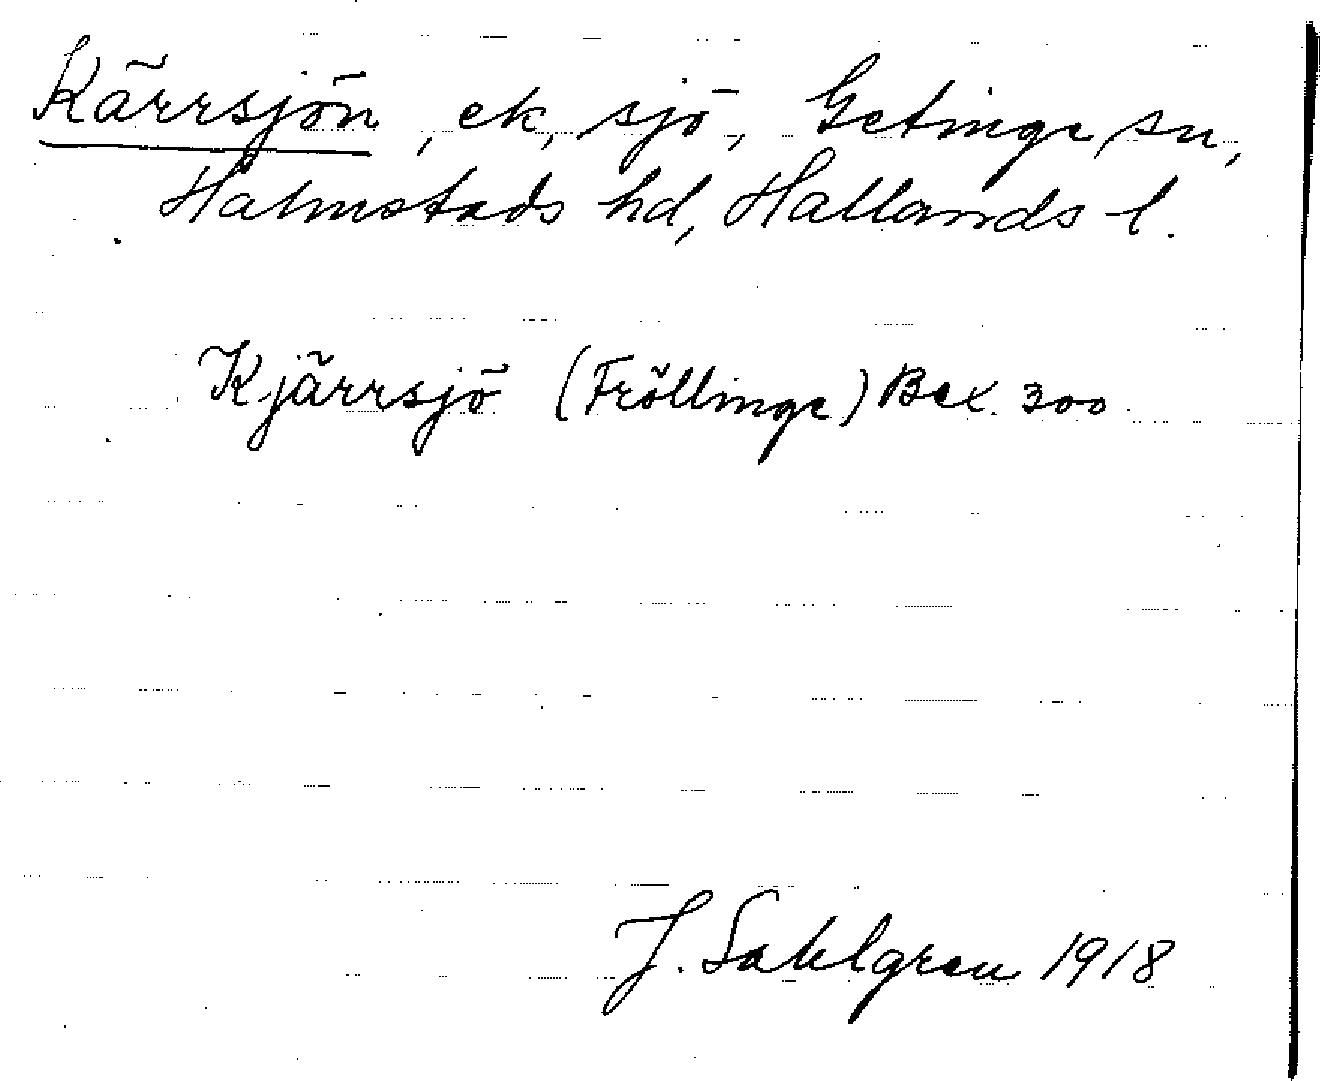 Kärrsjön, ek, sjö, Getinge sn,
Halmstads hd, Hallands l.
Kjärrsjö (Fröllinge) Bex. 300
J. Sahlgren 1918